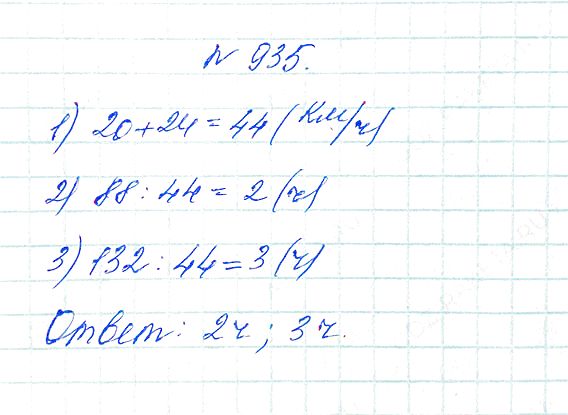 № 935.
1) 20+24=44 (км/ч)
2) 88:44=2 (ч)
3) 132:44=3 (ч)
Ответ: 2ч; 3ч.